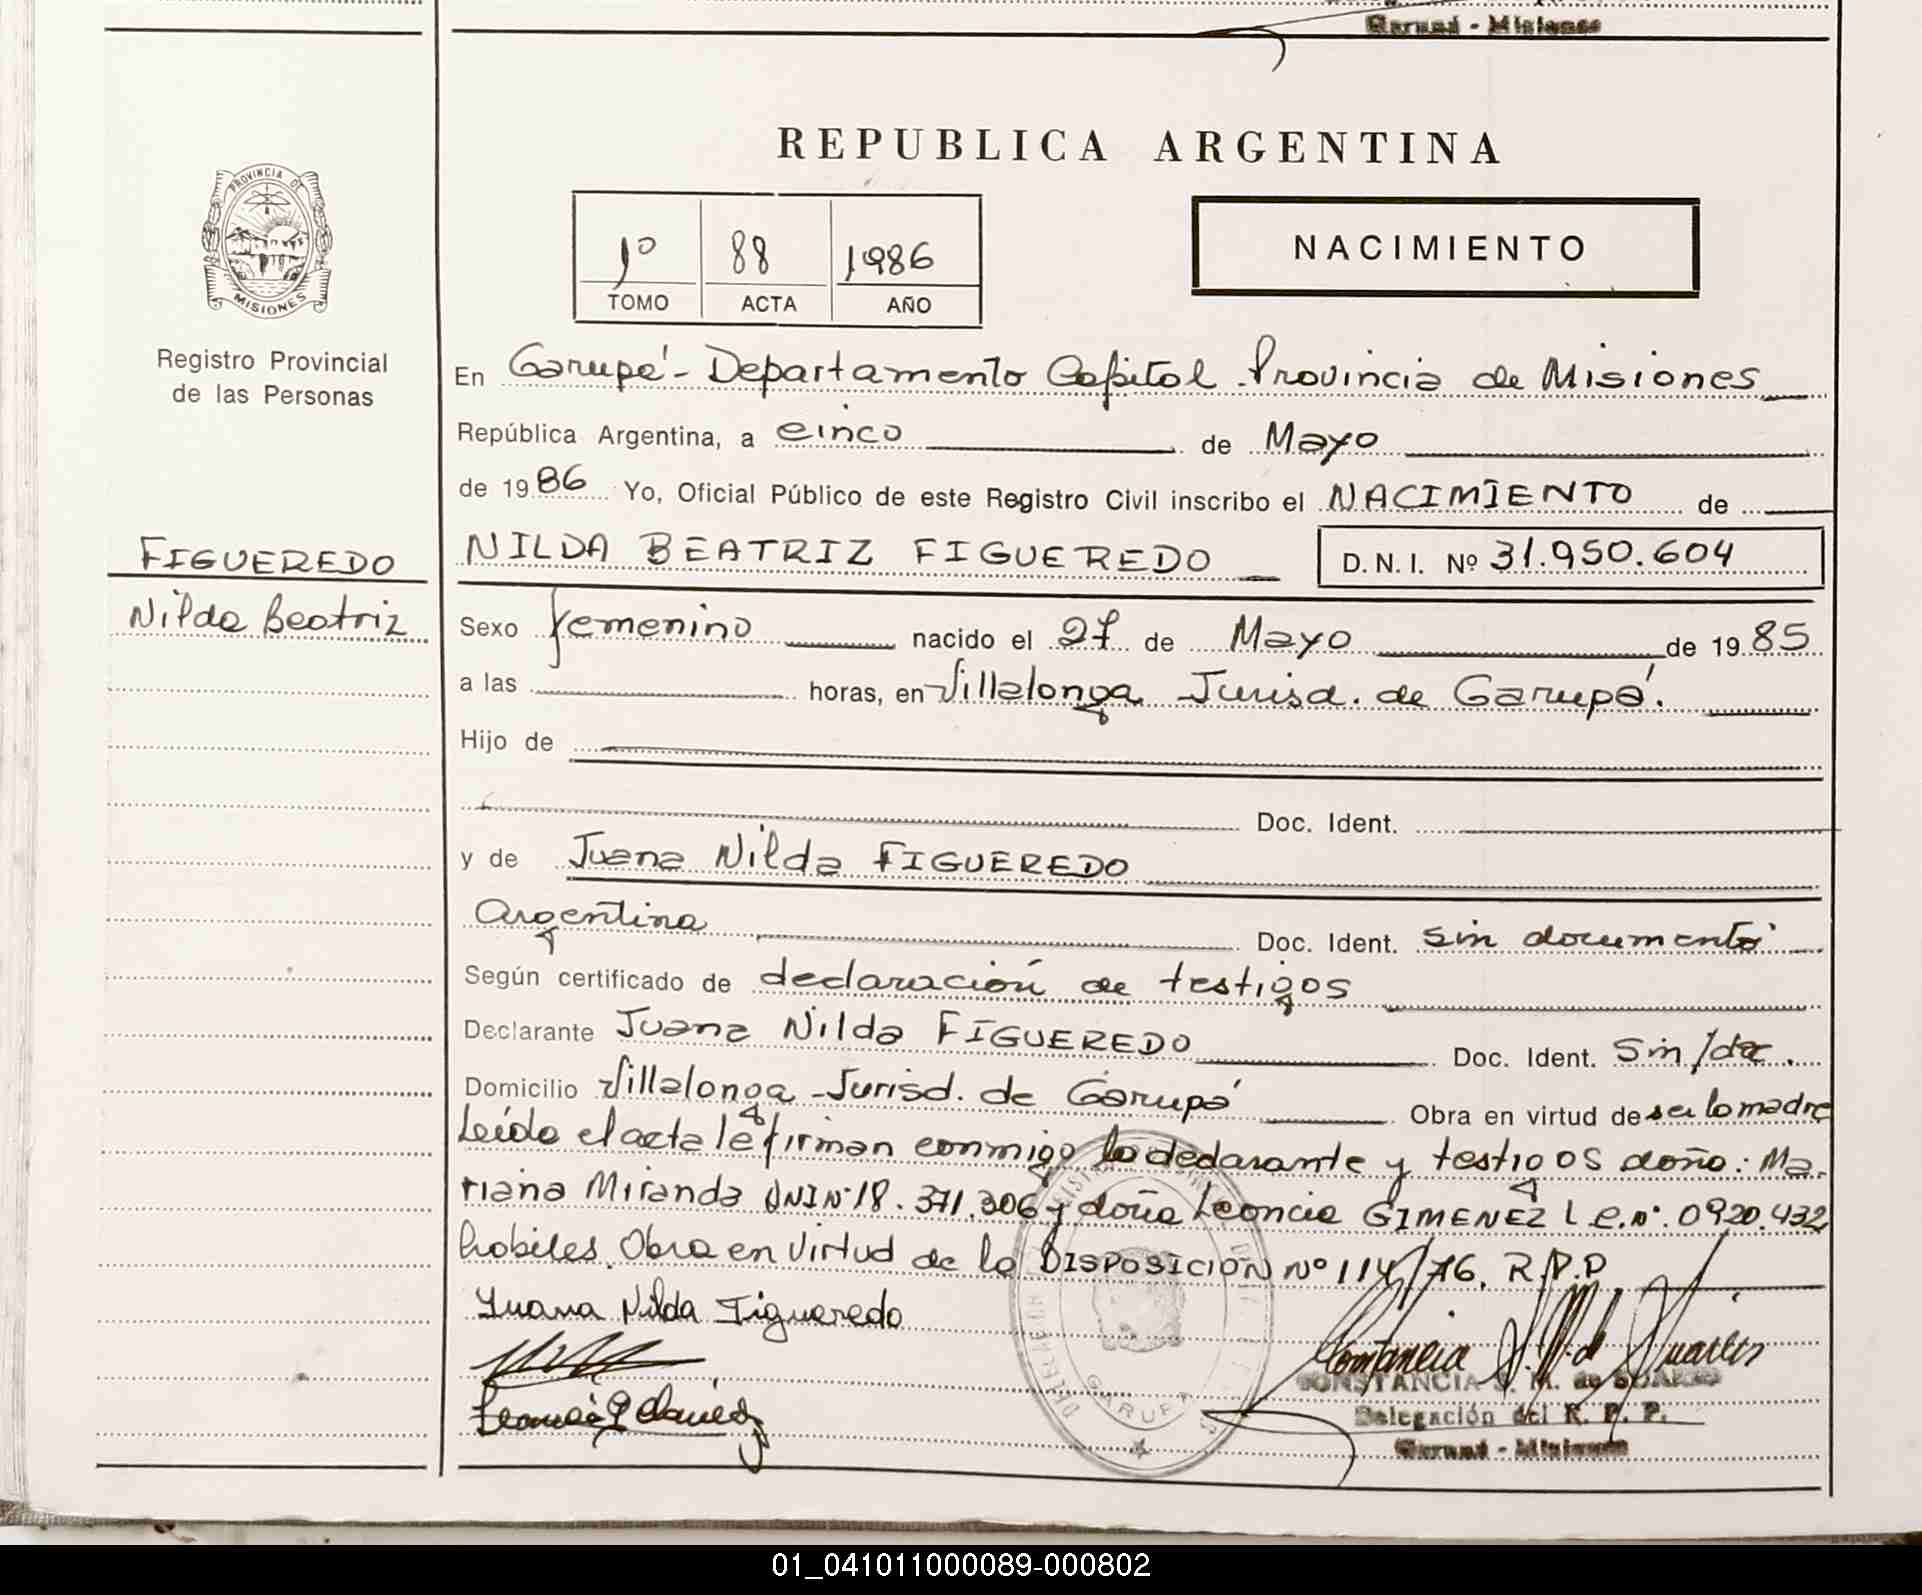 Garupá - Misiones
REPUBLICA ARGENTINA
PROVINCIA DE
MISIONES
Registro Provincial
de las Personas
1º 88 1986
TOMO ACTA AÑO
NACIMIENTO
En Garupá - Departamento Capital Provincia de Misiones
República Argentina, a cinco de Mayo
de 1986 Yo, Oficial Público de este Registro Civil inscribo el NACIMIENTO de
FIGUEREDO
Nilda Beatriz
NILDA BEATRIZ FIGUEREDO D.N.I. Nº 31.950.604
Sexo femenino nacido el 27 de Mayo de 1985
a las horas, en Villalonga Jurisd. de Garupá.
Hijo de
Doc. Ident.
y de Juana Nilda FIGUEREDO
Argentina Doc. Ident. sin documento
Según certificado de declaración de testigos
Declarante Juana Nilda FIGUEREDO Doc. Ident. Sin/doc.
Domicilio Villalonga - Jurisd. de Garupá Obra en virtud de ser la madre
Leída el acta le firman conmigo la declarante y testigos doña: Ma-
riana Miranda DNI Nº 18.371.306 y doña Leoncia GIMENEZ L.E.Nº. 0920.432
hábiles. Obra en virtud de la DISPOSICION Nº 114/76. R.P.P
Juana Nilda Figueredo
GARUPA
CONSTANCIA S. M. de SUAREZ
Delegación del R. P. P.
Garupá - Misiones
01_041011000089-000802